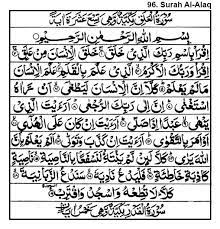 96. Surah Al-Alaq
سُورَةُ العَلَقِ مَكِّيَّةٌ وَهِيَ تِسْعَ عَشْرَةَ آيَة
بِسْمِ اللَّهِ الرَّحْمَٰنِ الرَّحِيمِ
اِقْرَأْ بِاسْمِ رَبِّكَ الَّذِي خَلَقَ خَلَقَ الْإِنْسَانَ مِنْ عَلَقٍ
اِقْرَأْ وَرَبُّكَ الْأَكْرَمُ الَّذِي عَلَّمَ بِالْقَلَمِ عَلَّمَ الْإِنْسَانَ
مَا لَمْ يَعْلَمْ كَلَّا إِنَّ الْإِنْسَانَ لَيَطْغَىٰ أَنْ رَآهُ
اسْتَغْنَىٰ إِنَّ إِلَىٰ رَبِّكَ الرُّجْعَىٰ أَرَأَيْتَ الَّذِي يَنْهَىٰ
عَبْدًا إِذَا صَلَّىٰ أَرَأَيْتَ إِنْ كَانَ عَلَى الْهُدَىٰ
أَوْ أَمَرَ بِالتَّقْوَىٰ أَرَأَيْتَ إِنْ كَذَّبَ وَتَوَلَّىٰ أَلَمْ يَعْلَمْ بِأَنَّ
اللَّهَ يَرَىٰ كَلَّا لَئِنْ لَمْ يَنْتَهِ لَنَسْفَعًا بِالنَّاصِيَةِ نَاصِيَةٍ
كَاذِبَةٍ خَاطِئَةٍ فَلْيَدْعُ نَادِيَهُ سَنَدْعُ الزَّبَانِيَةَ
كَلَّا لَا تُطِعْهُ وَاسْجُدْ وَاقْتَرِبْ
سُورَةُ القَدْرِ مَكِّيَّةٌ وَهِيَ خَمْسُ آيَات